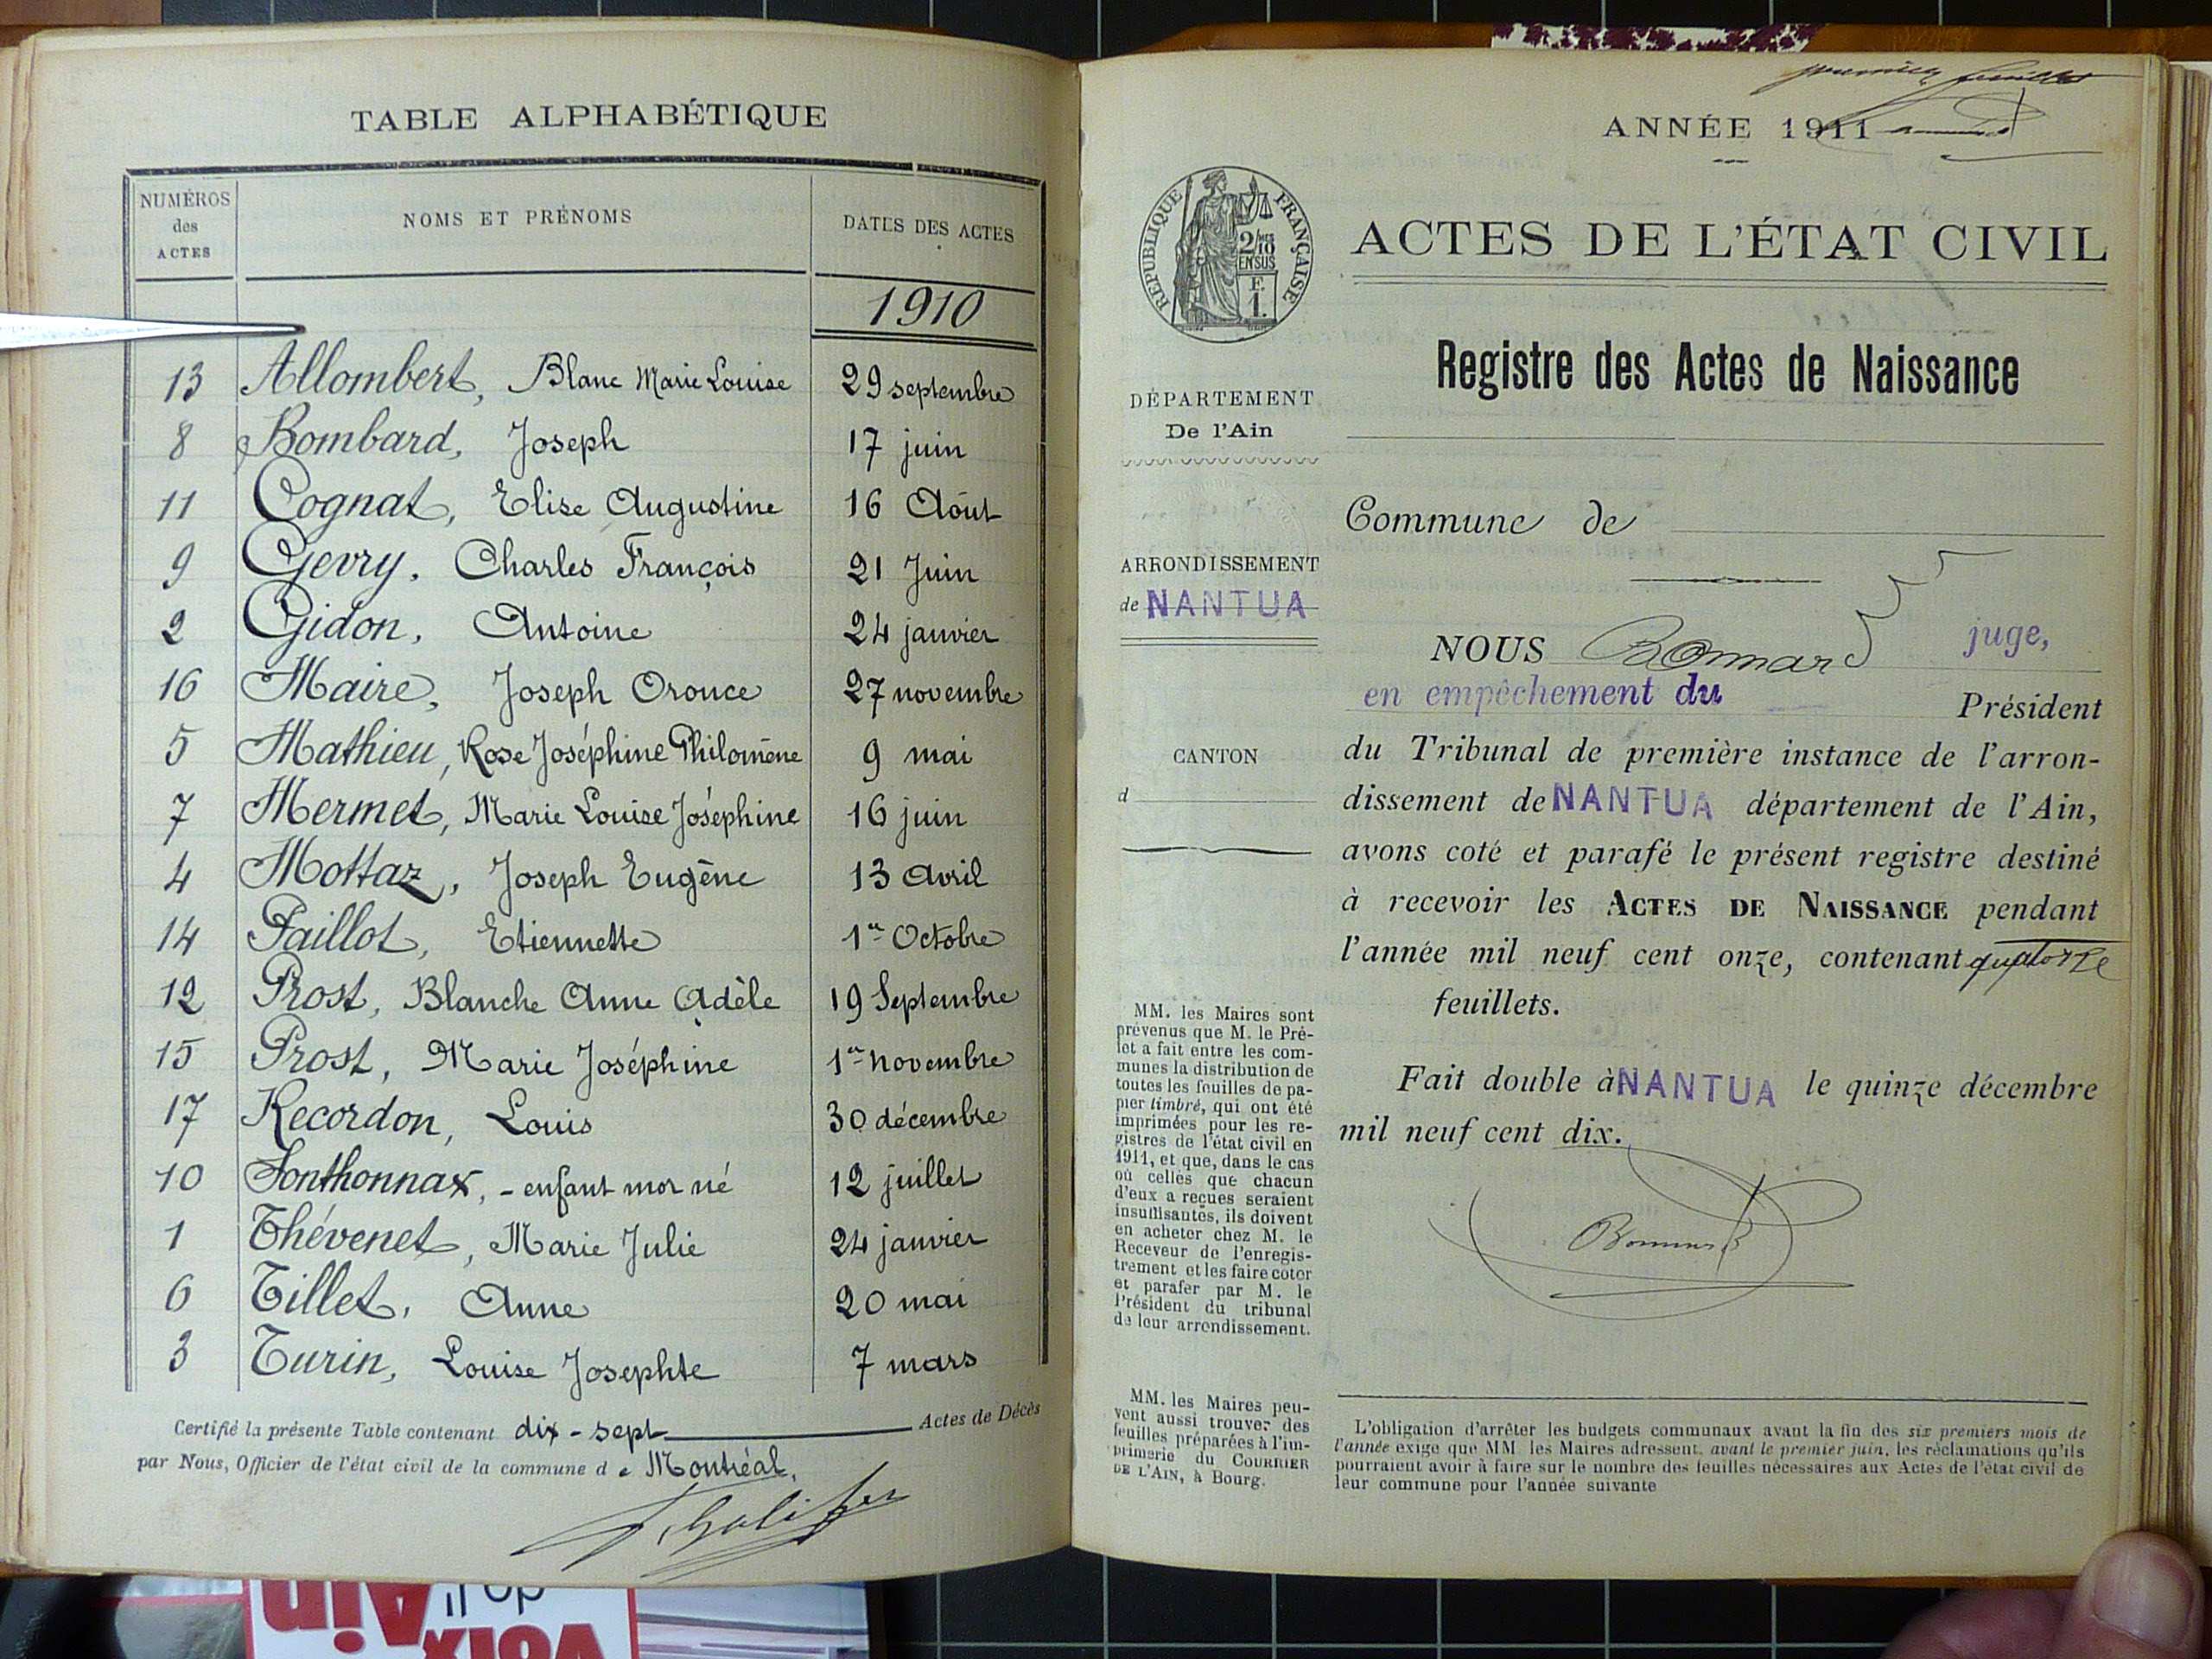 TABLE ALPHABÉTIQUE
NUMÉROS des ACTES
NOMS ET PRÉNOMS
DATES DES ACTES
1910
13 Allombert, Blanc Marie Louise 29 septembre
8 Bombard, Joseph 17 juin
11 Cognat, Elise Augustine 16 Août
9 Gevry, Charles François 21 Juin
2 Gidon, Antoine 24 janvier
16 Maire, Joseph Oronce 27 novembre
5 Mathieu, Rose Joséphine Philomène 9 mai
7 Mermet, Marie Louise Joséphine 16 juin
4 Mottaz, Joseph Eugène 13 Avril
14 Paillot, Etiennette 1er Octobre
12 Prost, Blanche Anne Adèle 19 Septembre
15 Prost, Marie Joséphine 1er novembre
17 Recordon, Louis 30 décembre
10 Sonthonnax, - enfant mor né 12 juillet
1 Thévenet, Marie Julie 24 janvier
6 Tillet, Anne 20 mai
3 Turin, Louise Josephte 7 mars
Certifié la présente Table contenant dix-sept Actes de Décès
par Nous, Officier de l'état civil de la commune de Montréal,
premier feuillet
ANNÉE 1911
RÉPUBLIQUE FRANÇAISE
2/10
EN SUS
F.
1.
ACTES DE L'ÉTAT CIVIL
Registre des Actes de Naissance
DÉPARTEMENT
De l'Ain
Commune de
ARRONDISSEMENT
de NANTUA
NOUS Bonnard juge,
en empêchement du Président
CANTON
d
du Tribunal de première instance de l'arron-
dissement de NANTUA département de l'Ain,
avons coté et parafé le présent registre destiné
à recevoir les ACTES DE NAISSANCE pendant
l'année mil neuf cent onze, contenant quatorze
feuillets.
Fait double à NANTUA le quinze décembre
mil neuf cent dix.
Bonnard
MM. les Maires sont
prévenus que M. le Pré-
fet a fait entre les com-
munes la distribution de
toutes les feuilles de pa-
pier timbré, qui ont été
imprimées pour les re-
gistres de l'état civil en
1911, et que, dans le cas
où celles que chacun
d'eux a reçues seraient
insuffisantes, ils doivent
en acheter chez M. le
Receveur de l'enregis-
trement et les faire coter
et parafer par M. le
Président du tribunal
de leur arrondissement.
MM. les Maires peu-
vent aussi trouver des
feuilles préparées à l'im-
primerie du COURRIER
DE L'AIN, à Bourg.
L'obligation d'arrêter les budgets communaux avant la fin des six premiers mois de
l'année exige que MM. les Maires adressent, avant le premier juin, les réclamations qu'ils
pourraient avoir à faire sur le nombre des feuilles nécessaires aux Actes de l'état civil de
leur commune pour l'année suivante
VOIX
Ain